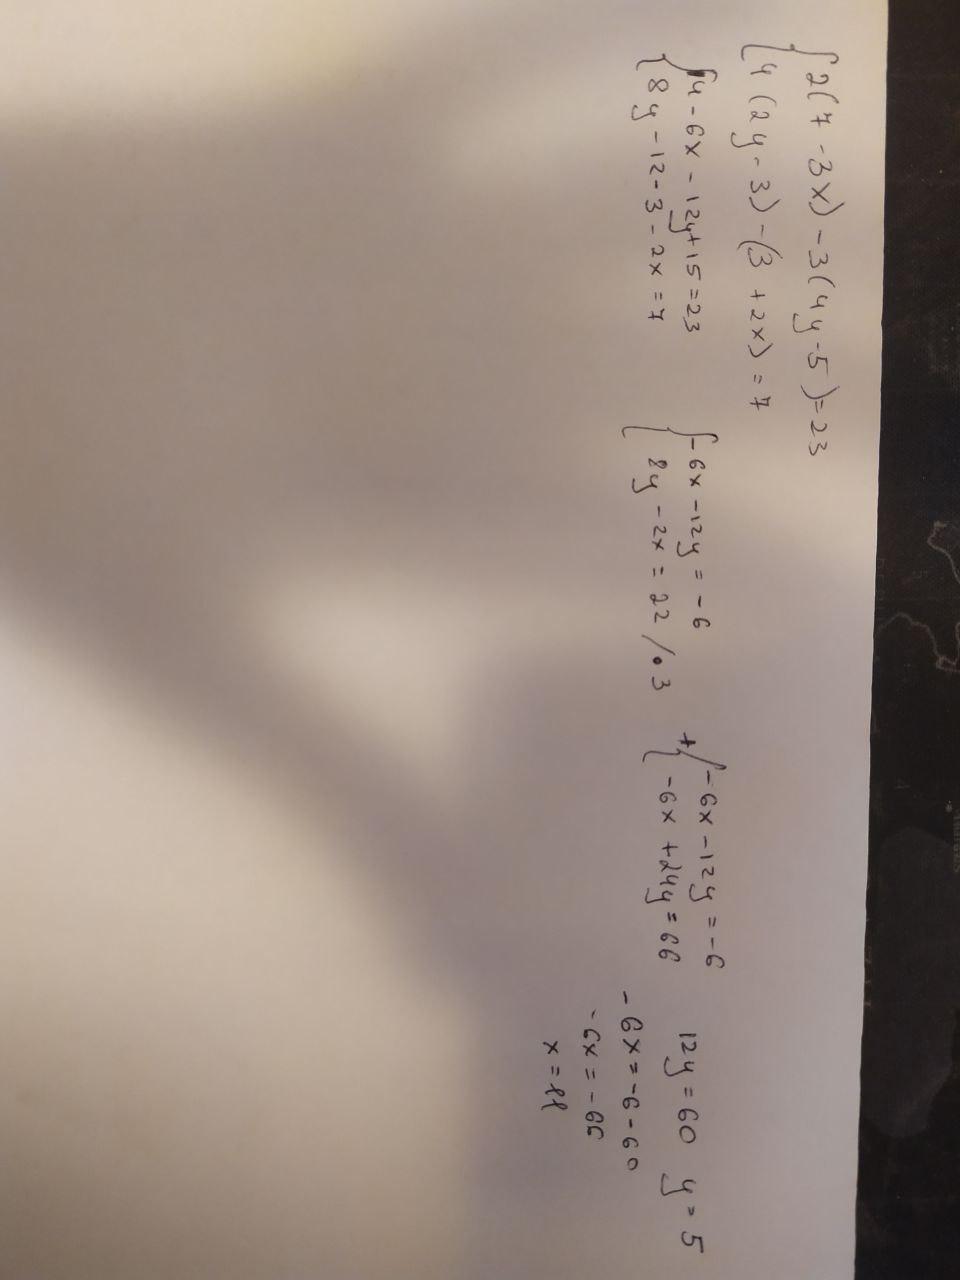 2(7-3x)-3(4y-5)=23
4(2y-3)-(3+2x)=7
14-6x-12y+15=23
8y-12-3-2x=7
-6x-12y=-6
8y-2x=22/•3
+
-6x-12y=-6
-6x+24y=66
12y=60 y=5
-6x=-6-60
-6x=-66
x=11